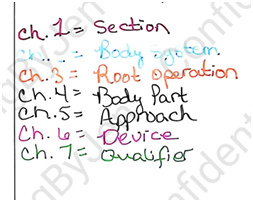 ch. 1 = Section
ch. = Body System
Ch. 3 = Root operation
Ch. 4 = Body Part
Ch. 5 = Approach
Ch. 6 = Device
Ch. 7 = Qualifier